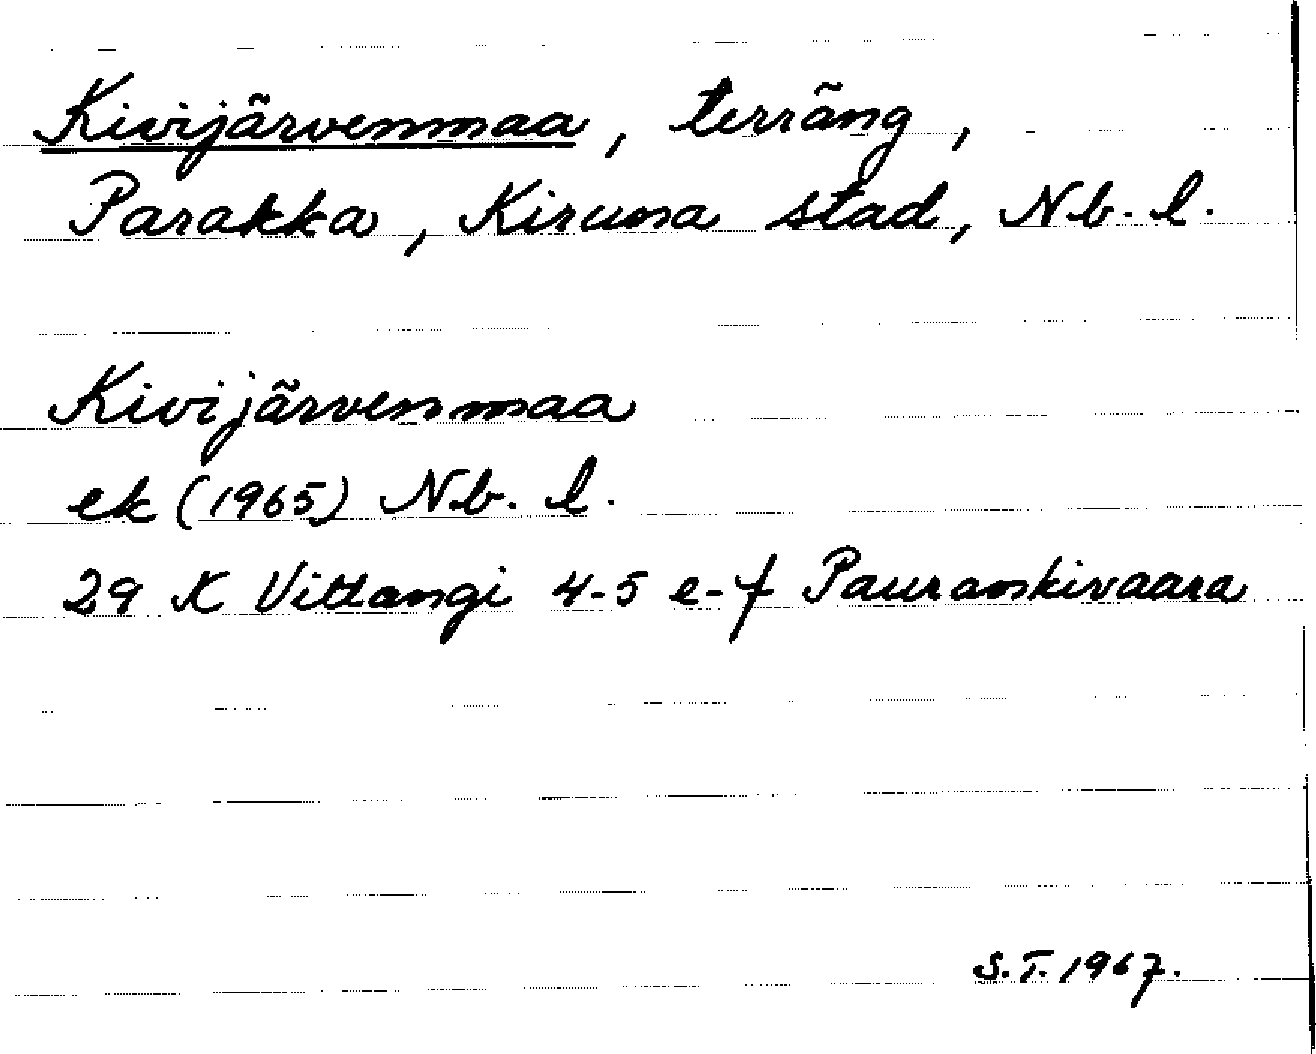 Kivijärvenmaa, terräng,
Parakka, Kiruna stad, Nb. l.
Kivijärvenmaa
ek (1965) Nb. l.
29 K Vittangi 4-5 e-f Pauranki­vaara
S.T. 1967.